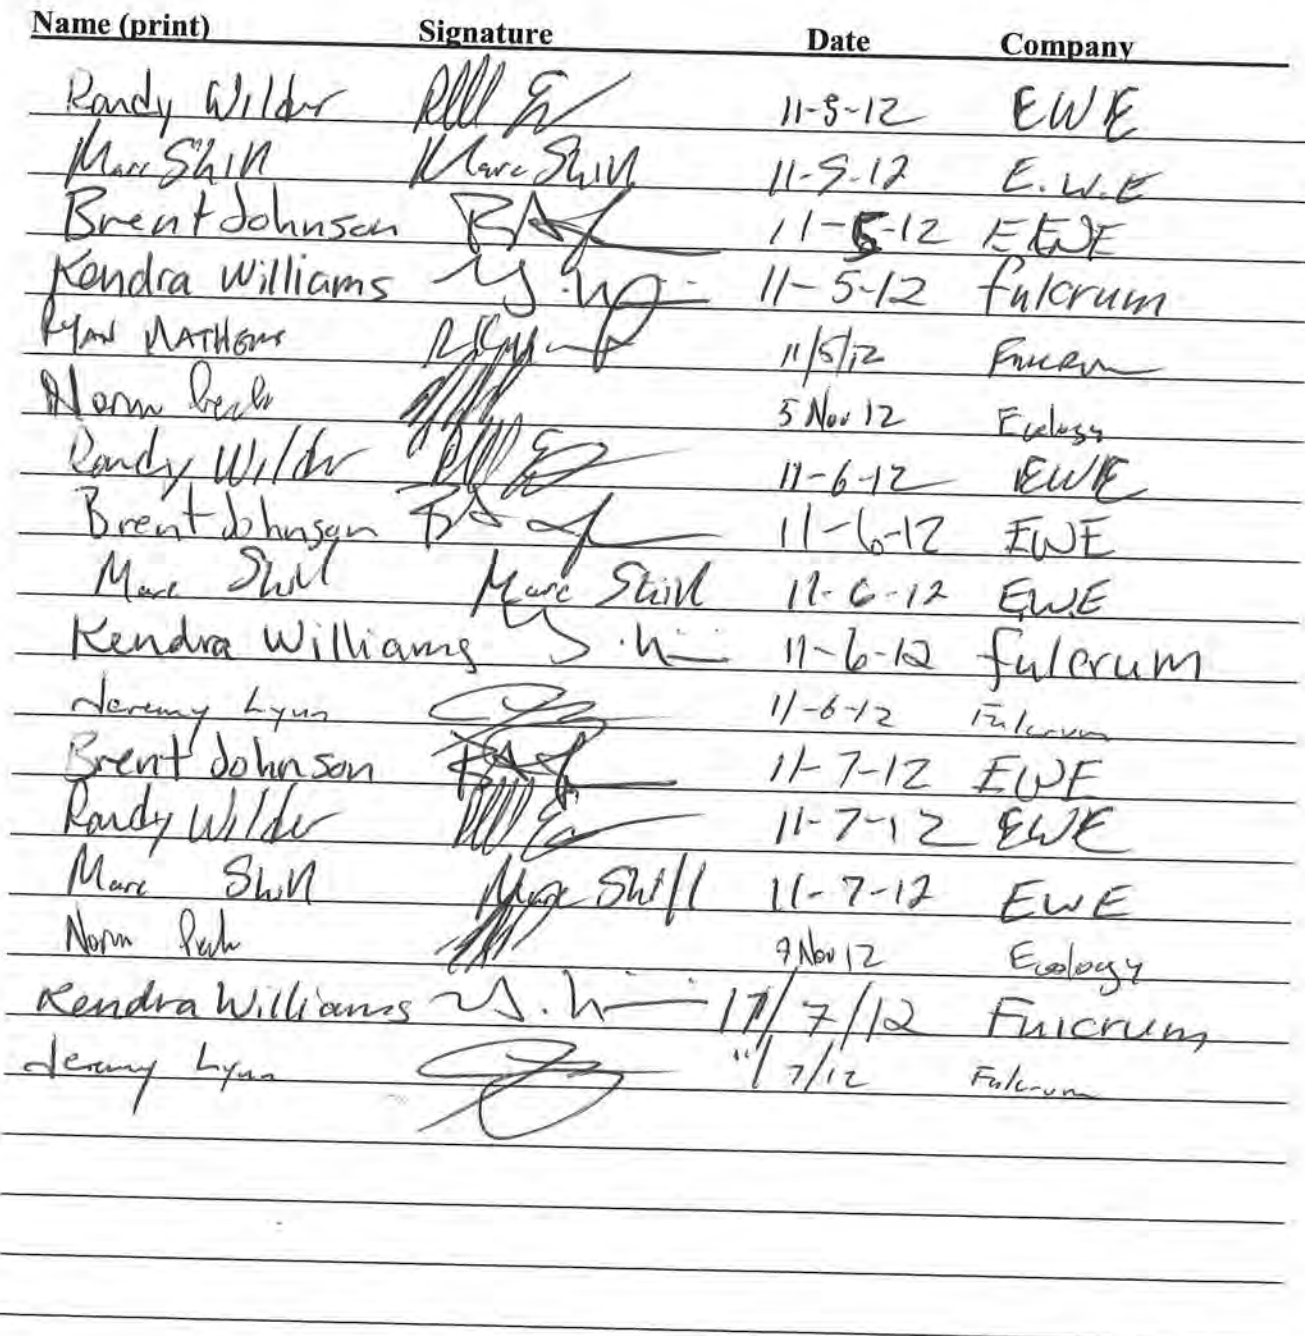 Name (print) Signature Date Company
Randy Wilder 11-5-12 EWE
Marc Shill Marc Shill 11-5-12 E.W.E
Brent Johnson 11-5-12 EWE
Kendra Williams 11-5-12 fulcrum
Ryan Mathews 11/5/12 Fulcrum
Norm Peck 5 Nov 12 Ecology
Randy Wilder 11-6-12 EWE
Brent Johnson 11-6-12 EWE
Marc Shill Marc Shill 11-6-12 EWE
Kendra Williams 11-6-12 fulcrum
Jeremy Lynn 11-6-12 Fulcrum
Brent Johnson 11-7-12 EWE
Randy Wilder 11-7-12 EWE
Marc Shill Marc Shill 11-7-12 EWE
Norm Peck 7 Nov 12 Ecology
Kendra Williams 11/7/12 Fulcrum
Jeremy Lynn 11/7/12 Fulcrum